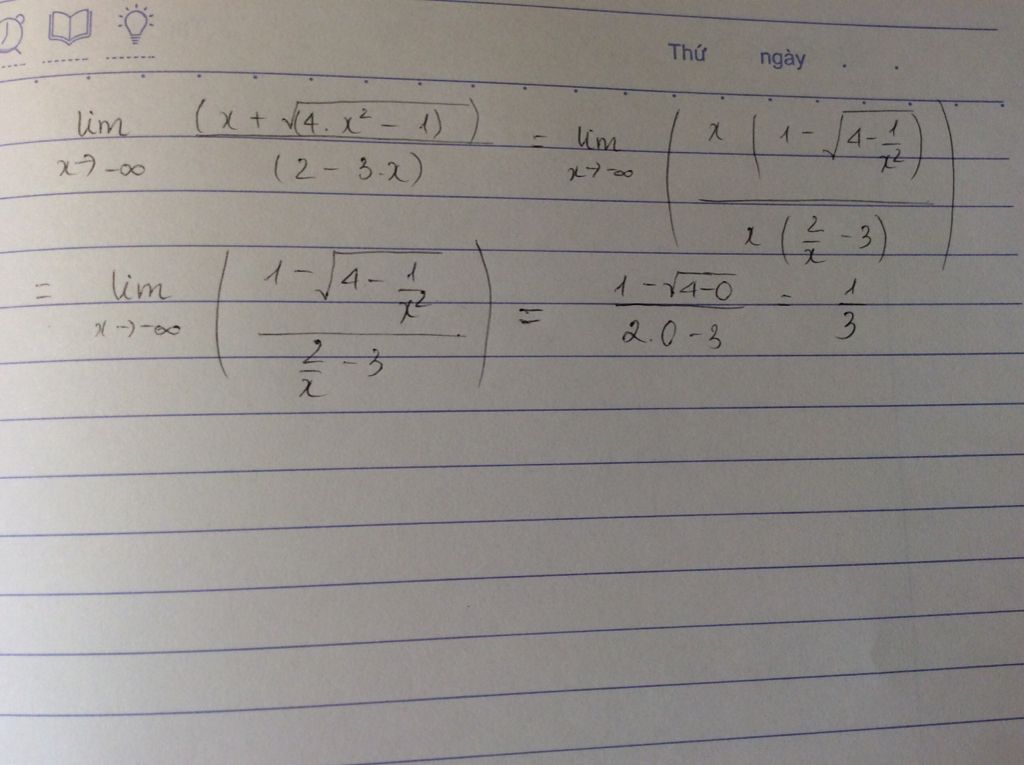 Thứ ngày . .
lim x→-∞ (x + √(4. x² - 1)) / (2 - 3.x) = lim x→-∞ ( x ( 1 - √(4 - 1/x²) ) / x ( 2/x - 3 ) )
= lim x→-∞ ( 1 - √(4 - 1/x²) / 2/x - 3 ) = 1 - √(4-0) / 2.0 - 3 = 1/3